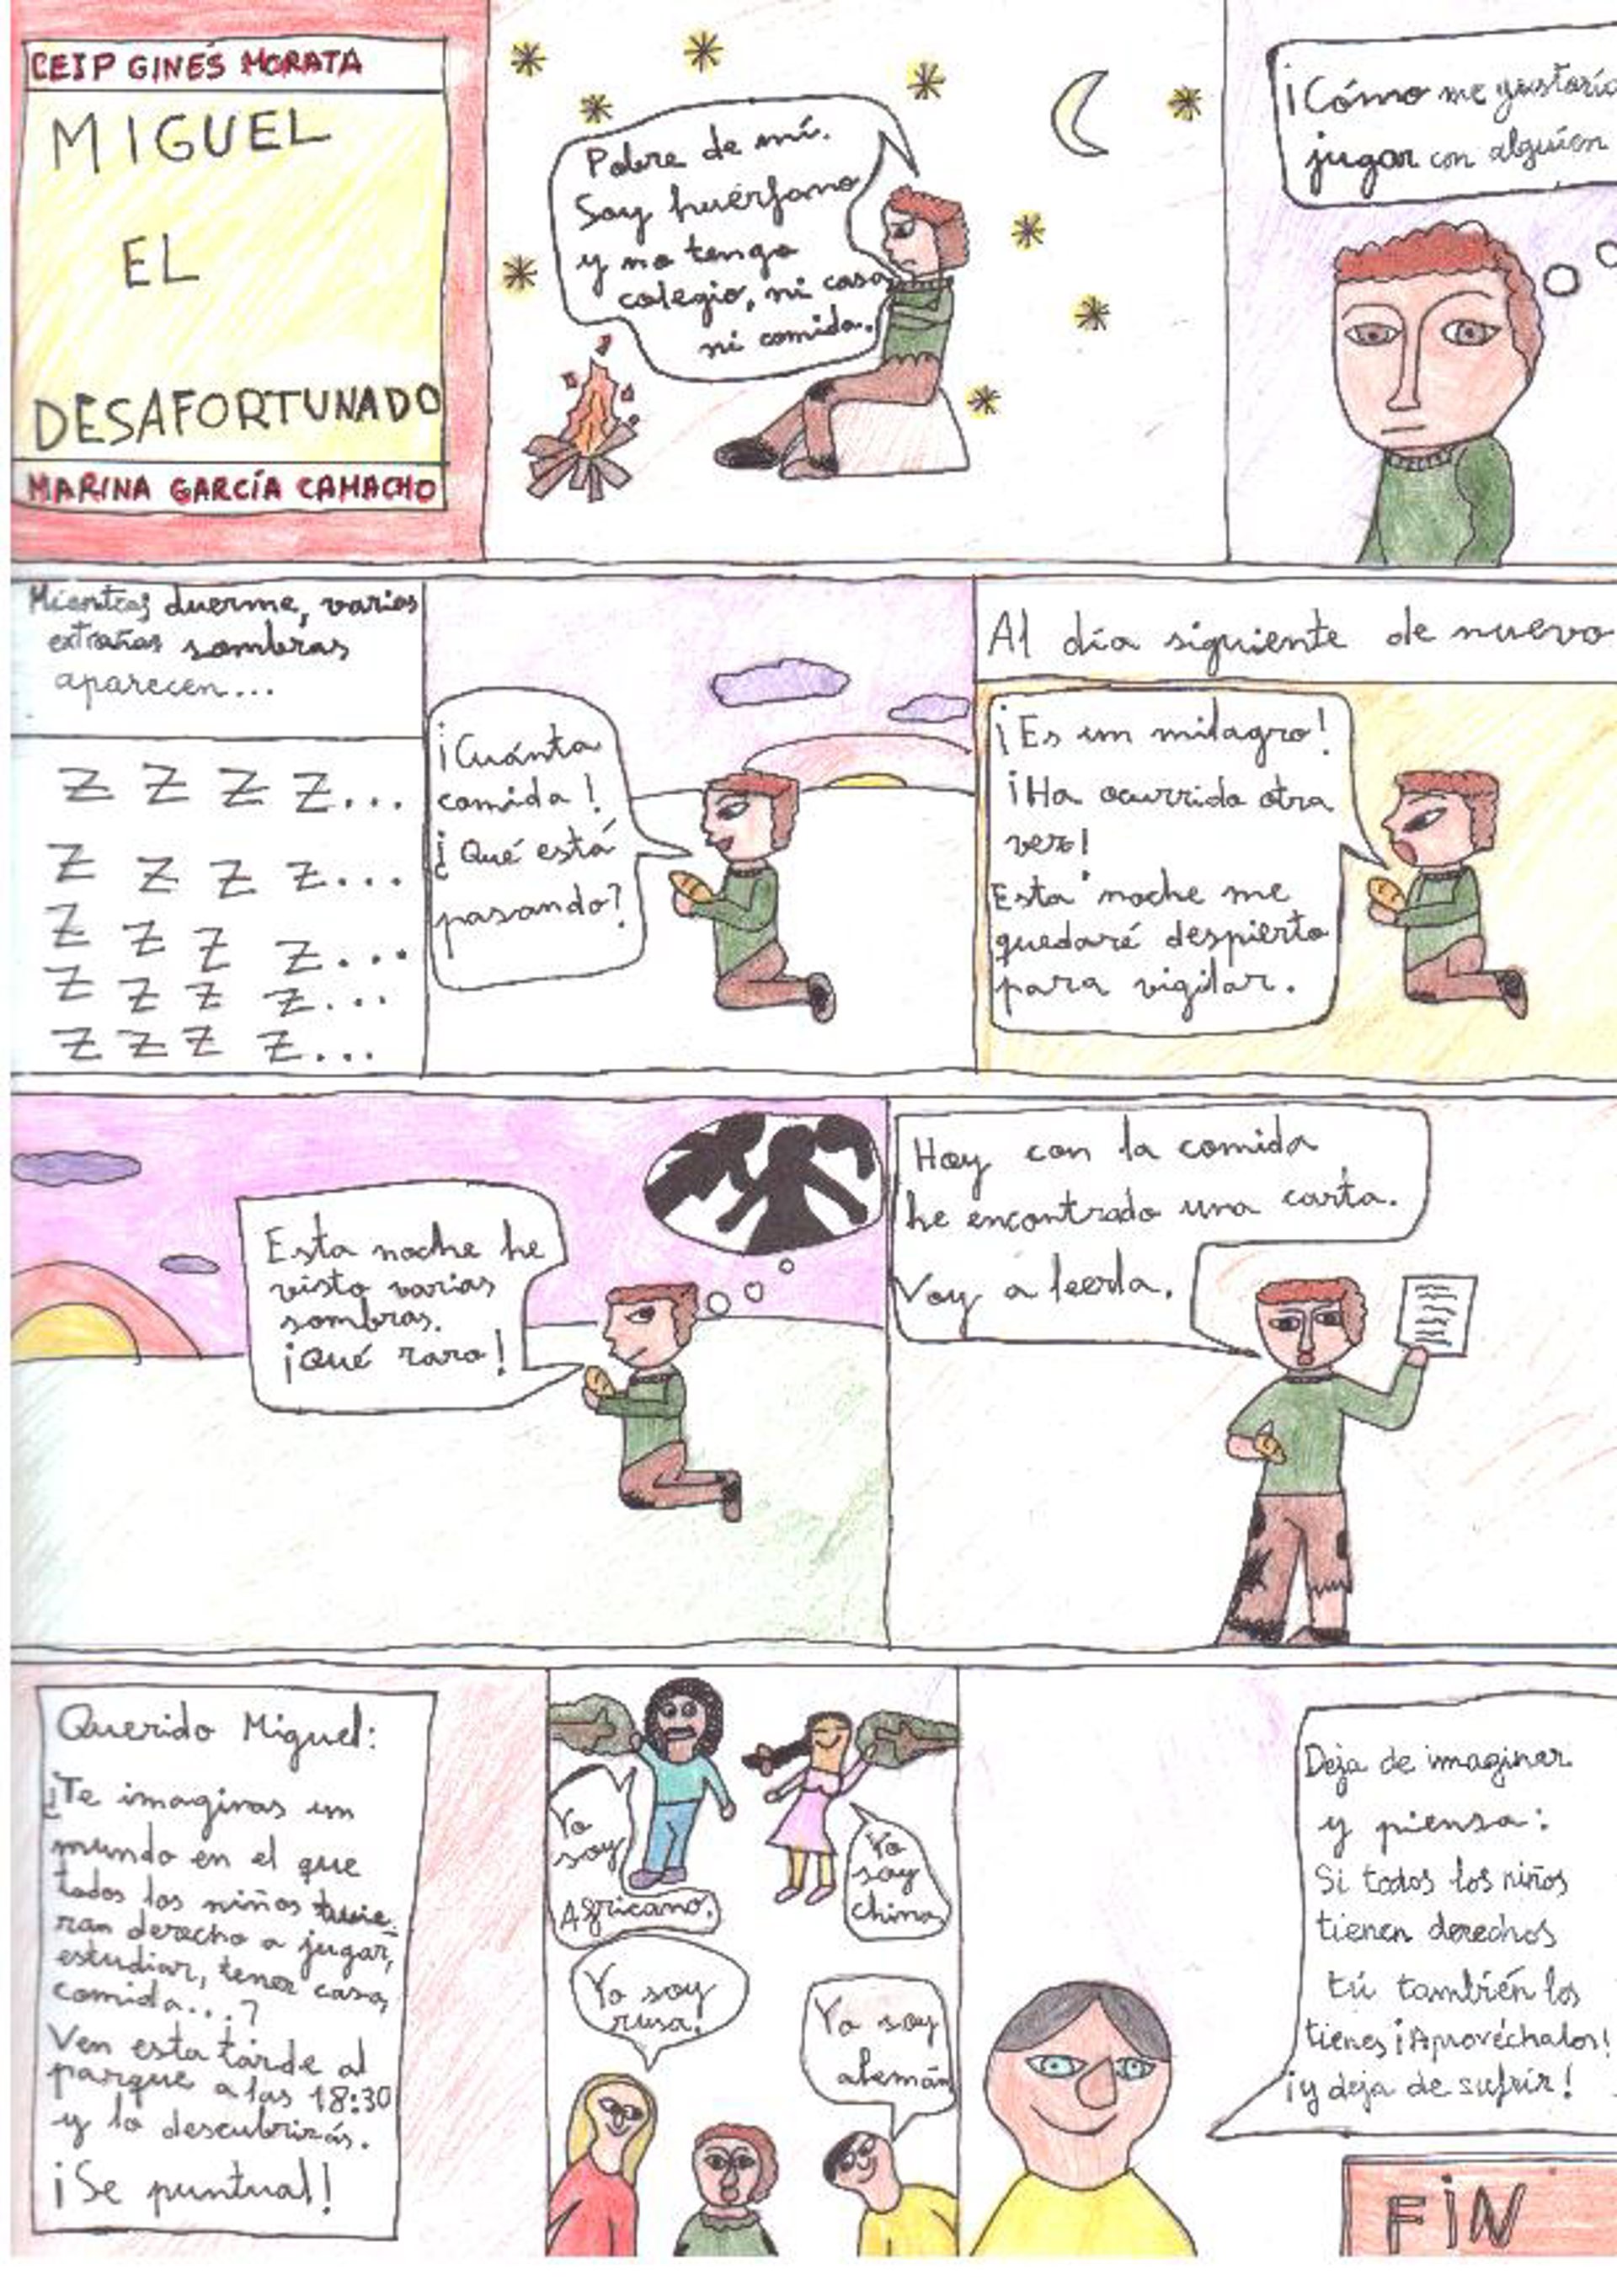 CEIP GINÉS MORATA
MIGUEL
EL
DESAFORTUNADO
MARINA GARCÍA CAMACHO
Pobre de mí.
Soy huérfano
y no tengo
colegio, ni casa
ni comida.
¡Cómo me gustaría
jugar con alguien
Mientras duerme, varias
extrañas sombras
aparecen...
Z Z Z Z...
Z Z Z Z...
Z Z Z Z...
Z Z Z Z...
Z Z Z Z...
¡Cuánta
comida!
¿Qué está
pasando?
Al día siguiente de nuevo
¡Es un milagro!
¡Ha ocurrido otra
vez!
Esta noche me
quedaré despierto
para vigilar.
Esta noche he
visto varias
sombras.
¡Qué raro!
Hoy con la comida
he encontrado una carta.
Voy a leerla.
Querido Miguel:
¿Te imaginas un
mundo en el que
todos los niños tuvie-
ran derecho a jugar,
estudiar, tener casa,
comida...?
Ven esta tarde al
parque a las 18:30
y lo descubrirás.
¡Se puntual!
Yo
soy
Africano.
Yo
soy
china
Yo soy
rusa.
Yo soy
alemán
Deja de imaginar
y piensa:
Si todos los niños
tienen derechos
tú también los
tienes ¡Aprovéchalos!
¡y deja de sufrir!
FIN